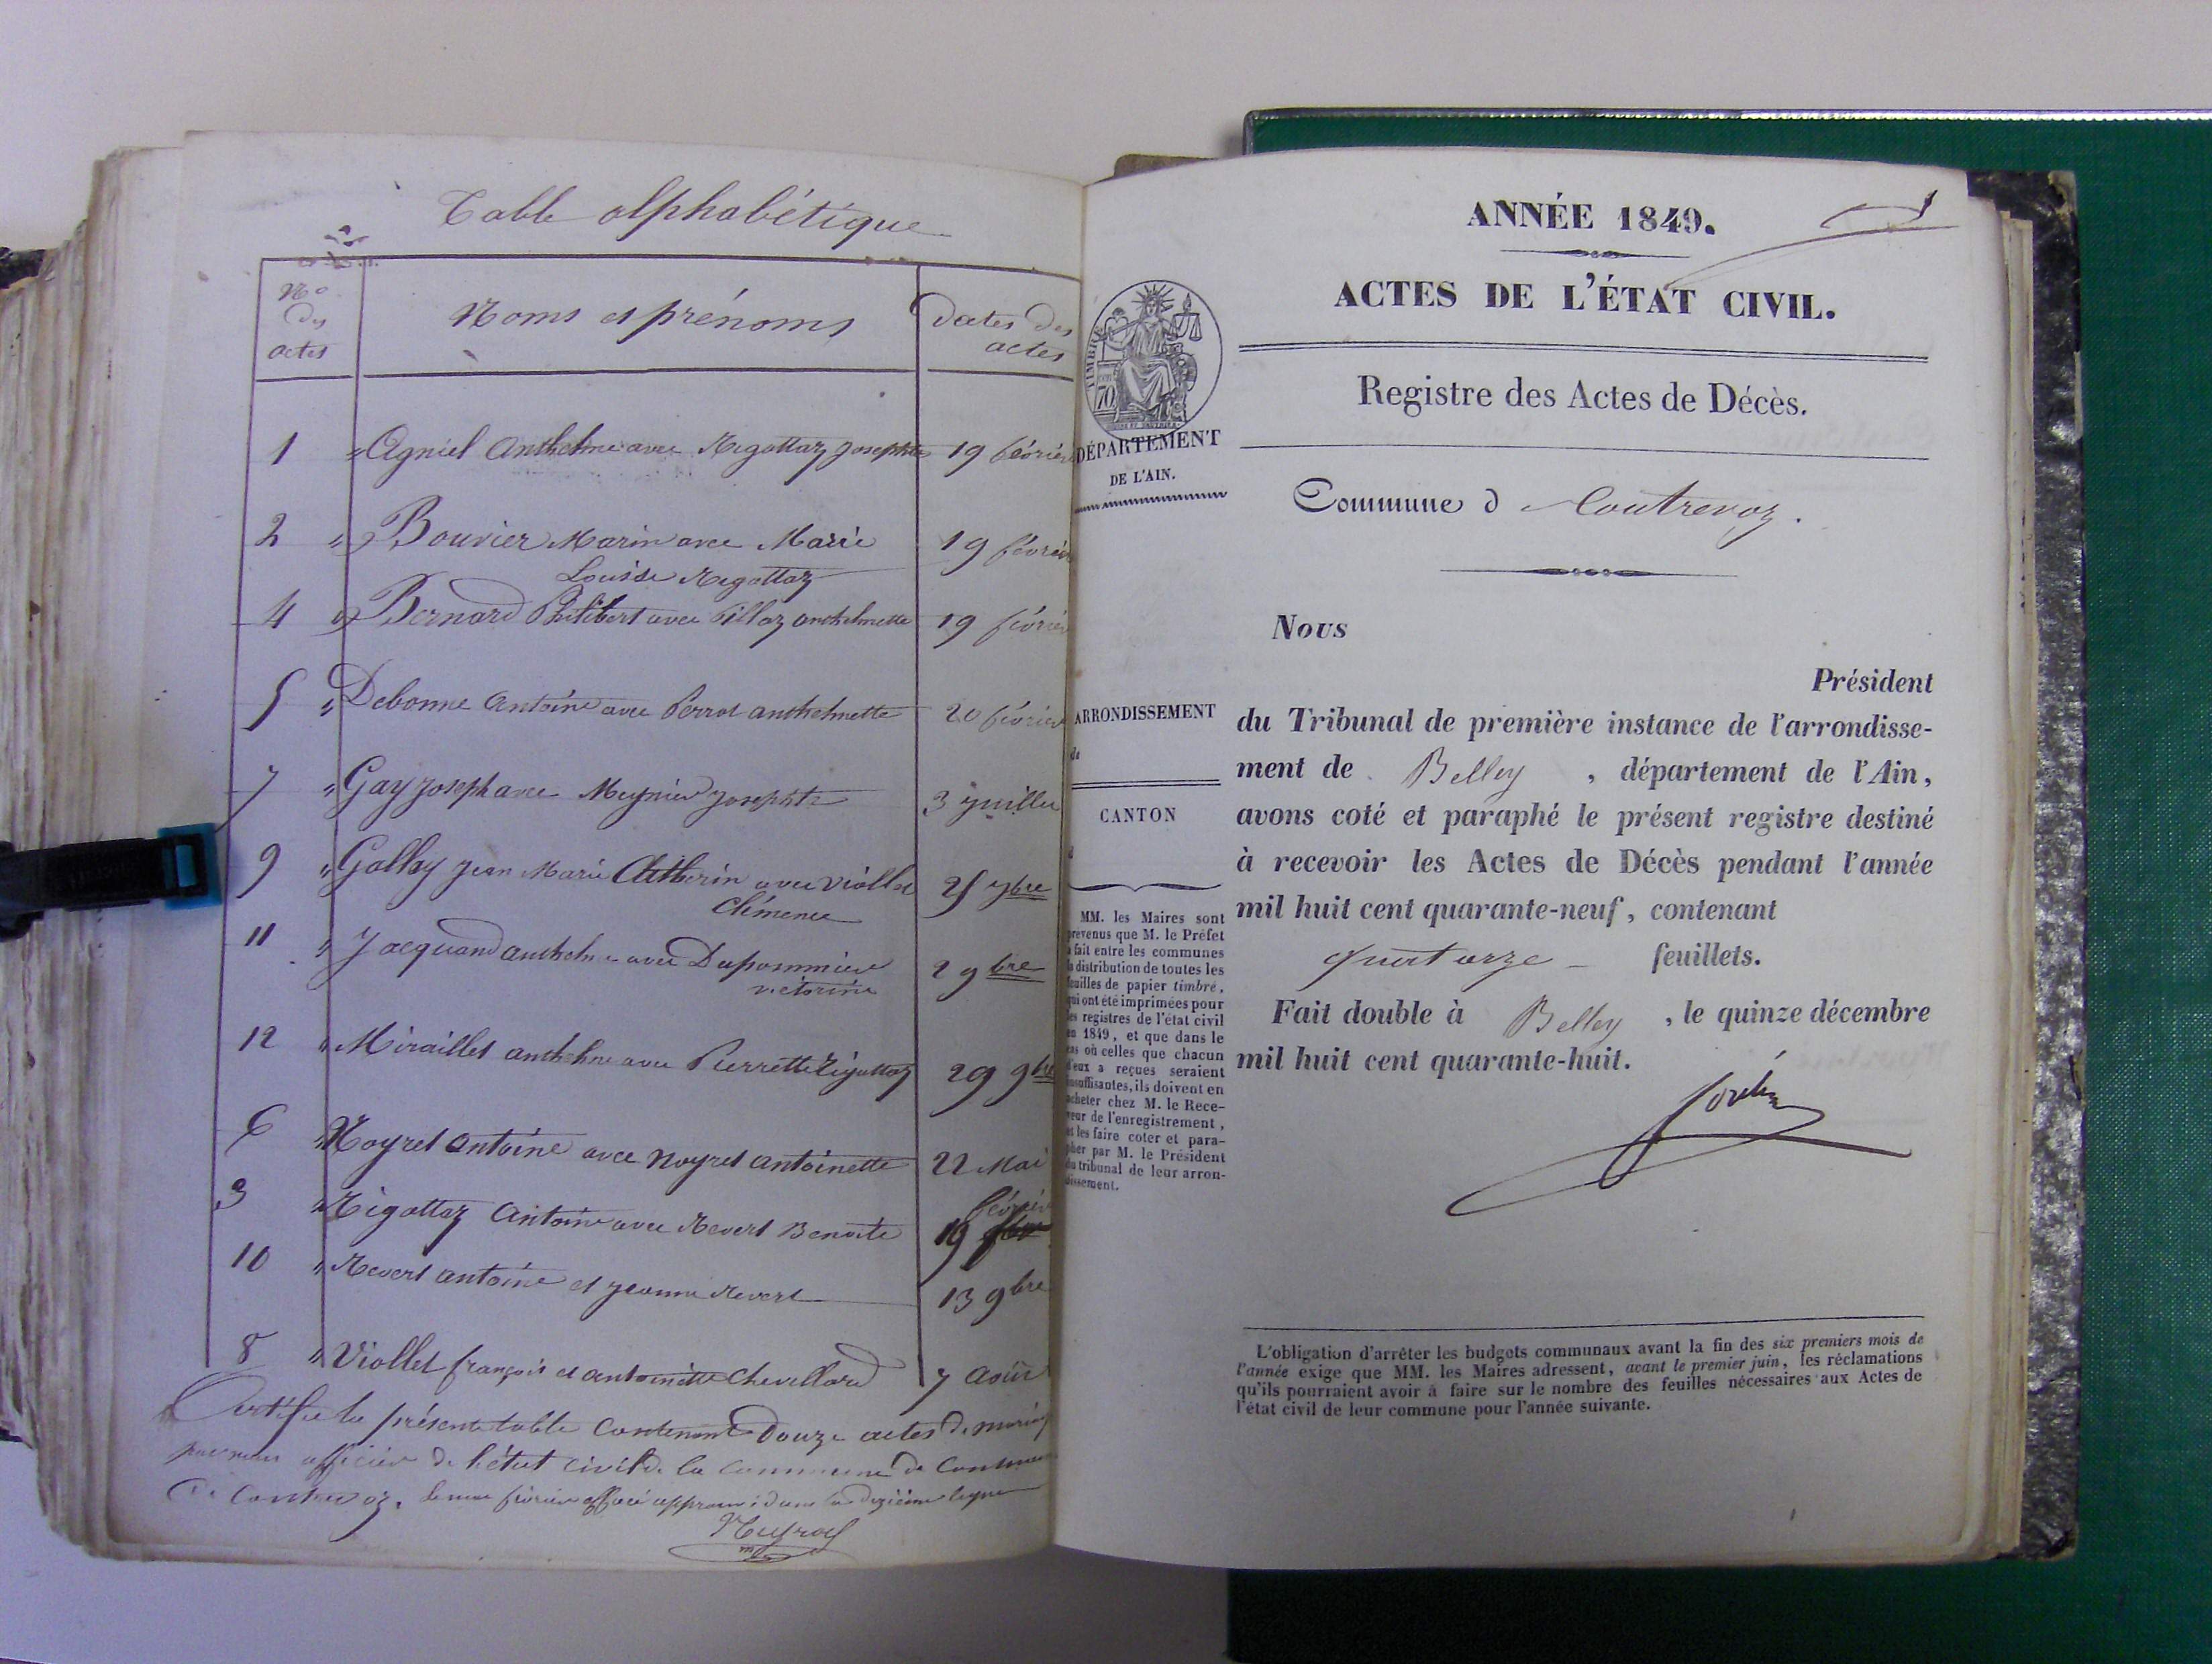 Table alphabétique
No des actes
Noms et prénoms
Dates des actes
1 " Agniel Anthelme avec Rigottaz Josephte 19 février
2 " Bouvier Marin avec Marie Louise Rigottaz 19 février
4 " Bernard Philibert avec Pillaz anthelmette 19 février
5 " Debonne Antoine avec Perrot anthelmette 20 février
7 " Gay Joseph avec Meynier Josephte 3 juillet
9 " Golley Jean Marie avec Viollet Clémence 25 7bre
11 " Jacquand anthelme avec Dupommier victorine 2 9bre
12 " Miraillet anthelme avec Pierrette Rigottaz 29 9bre
6 " Noyret antoine avec Noyret antoinette 22 Mai
3 " Rigottaz Antoine avec Revert Benoite 19 février
10 " Revert antoine et jeanne Revert 13 9bre
8 " Viollet françois et antoinette Chevillard 7 août
Certifié la présente table contenant Douze actes de mariage
par nous officier de l'état civil de la commune de
de Contrevoz. le mot février effacé approuvé dans la dixième ligne
ANNÉE 1849.
1
ACTES DE L'ÉTAT CIVIL.
Registre des Actes de Décès.
TIMBRE
70
DÉPARTEMENT
DE L'AIN.
Commune d Contrevoz.
Nous
Président
du Tribunal de première instance de l'arrondisse-
ment de Belley , département de l'Ain,
avons coté et paraphé le présent registre destiné
à recevoir les Actes de Décès pendant l'année
mil huit cent quarante-neuf, contenant
quatorze feuillets.
Fait double à Belley , le quinze décembre
mil huit cent quarante-huit.
ARRONDISSEMENT
de
CANTON
d
MM. les Maires sont
prévenus que M. le Préfet
a fait entre les communes
la distribution de toutes les
feuilles de papier timbré,
qui ont été imprimées pour
les registres de l'état civil
en 1849, et que dans le
cas où celles que chacun
d'eux a reçues seraient
insuffisantes, ils doivent en
acheter chez M. le Rece-
veur de l'enregistrement,
et les faire coter et para-
pher par M. le Président
du tribunal de leur arron-
dissement.
L'obligation d'arrêter les budgets communaux avant la fin des six premiers mois de
l'année exige que MM. les Maires adressent, avant le premier juin, les réclamations
qu'ils pourraient avoir à faire sur le nombre des feuilles nécessaires aux Actes de
l'état civil de leur commune pour l'année suivante.